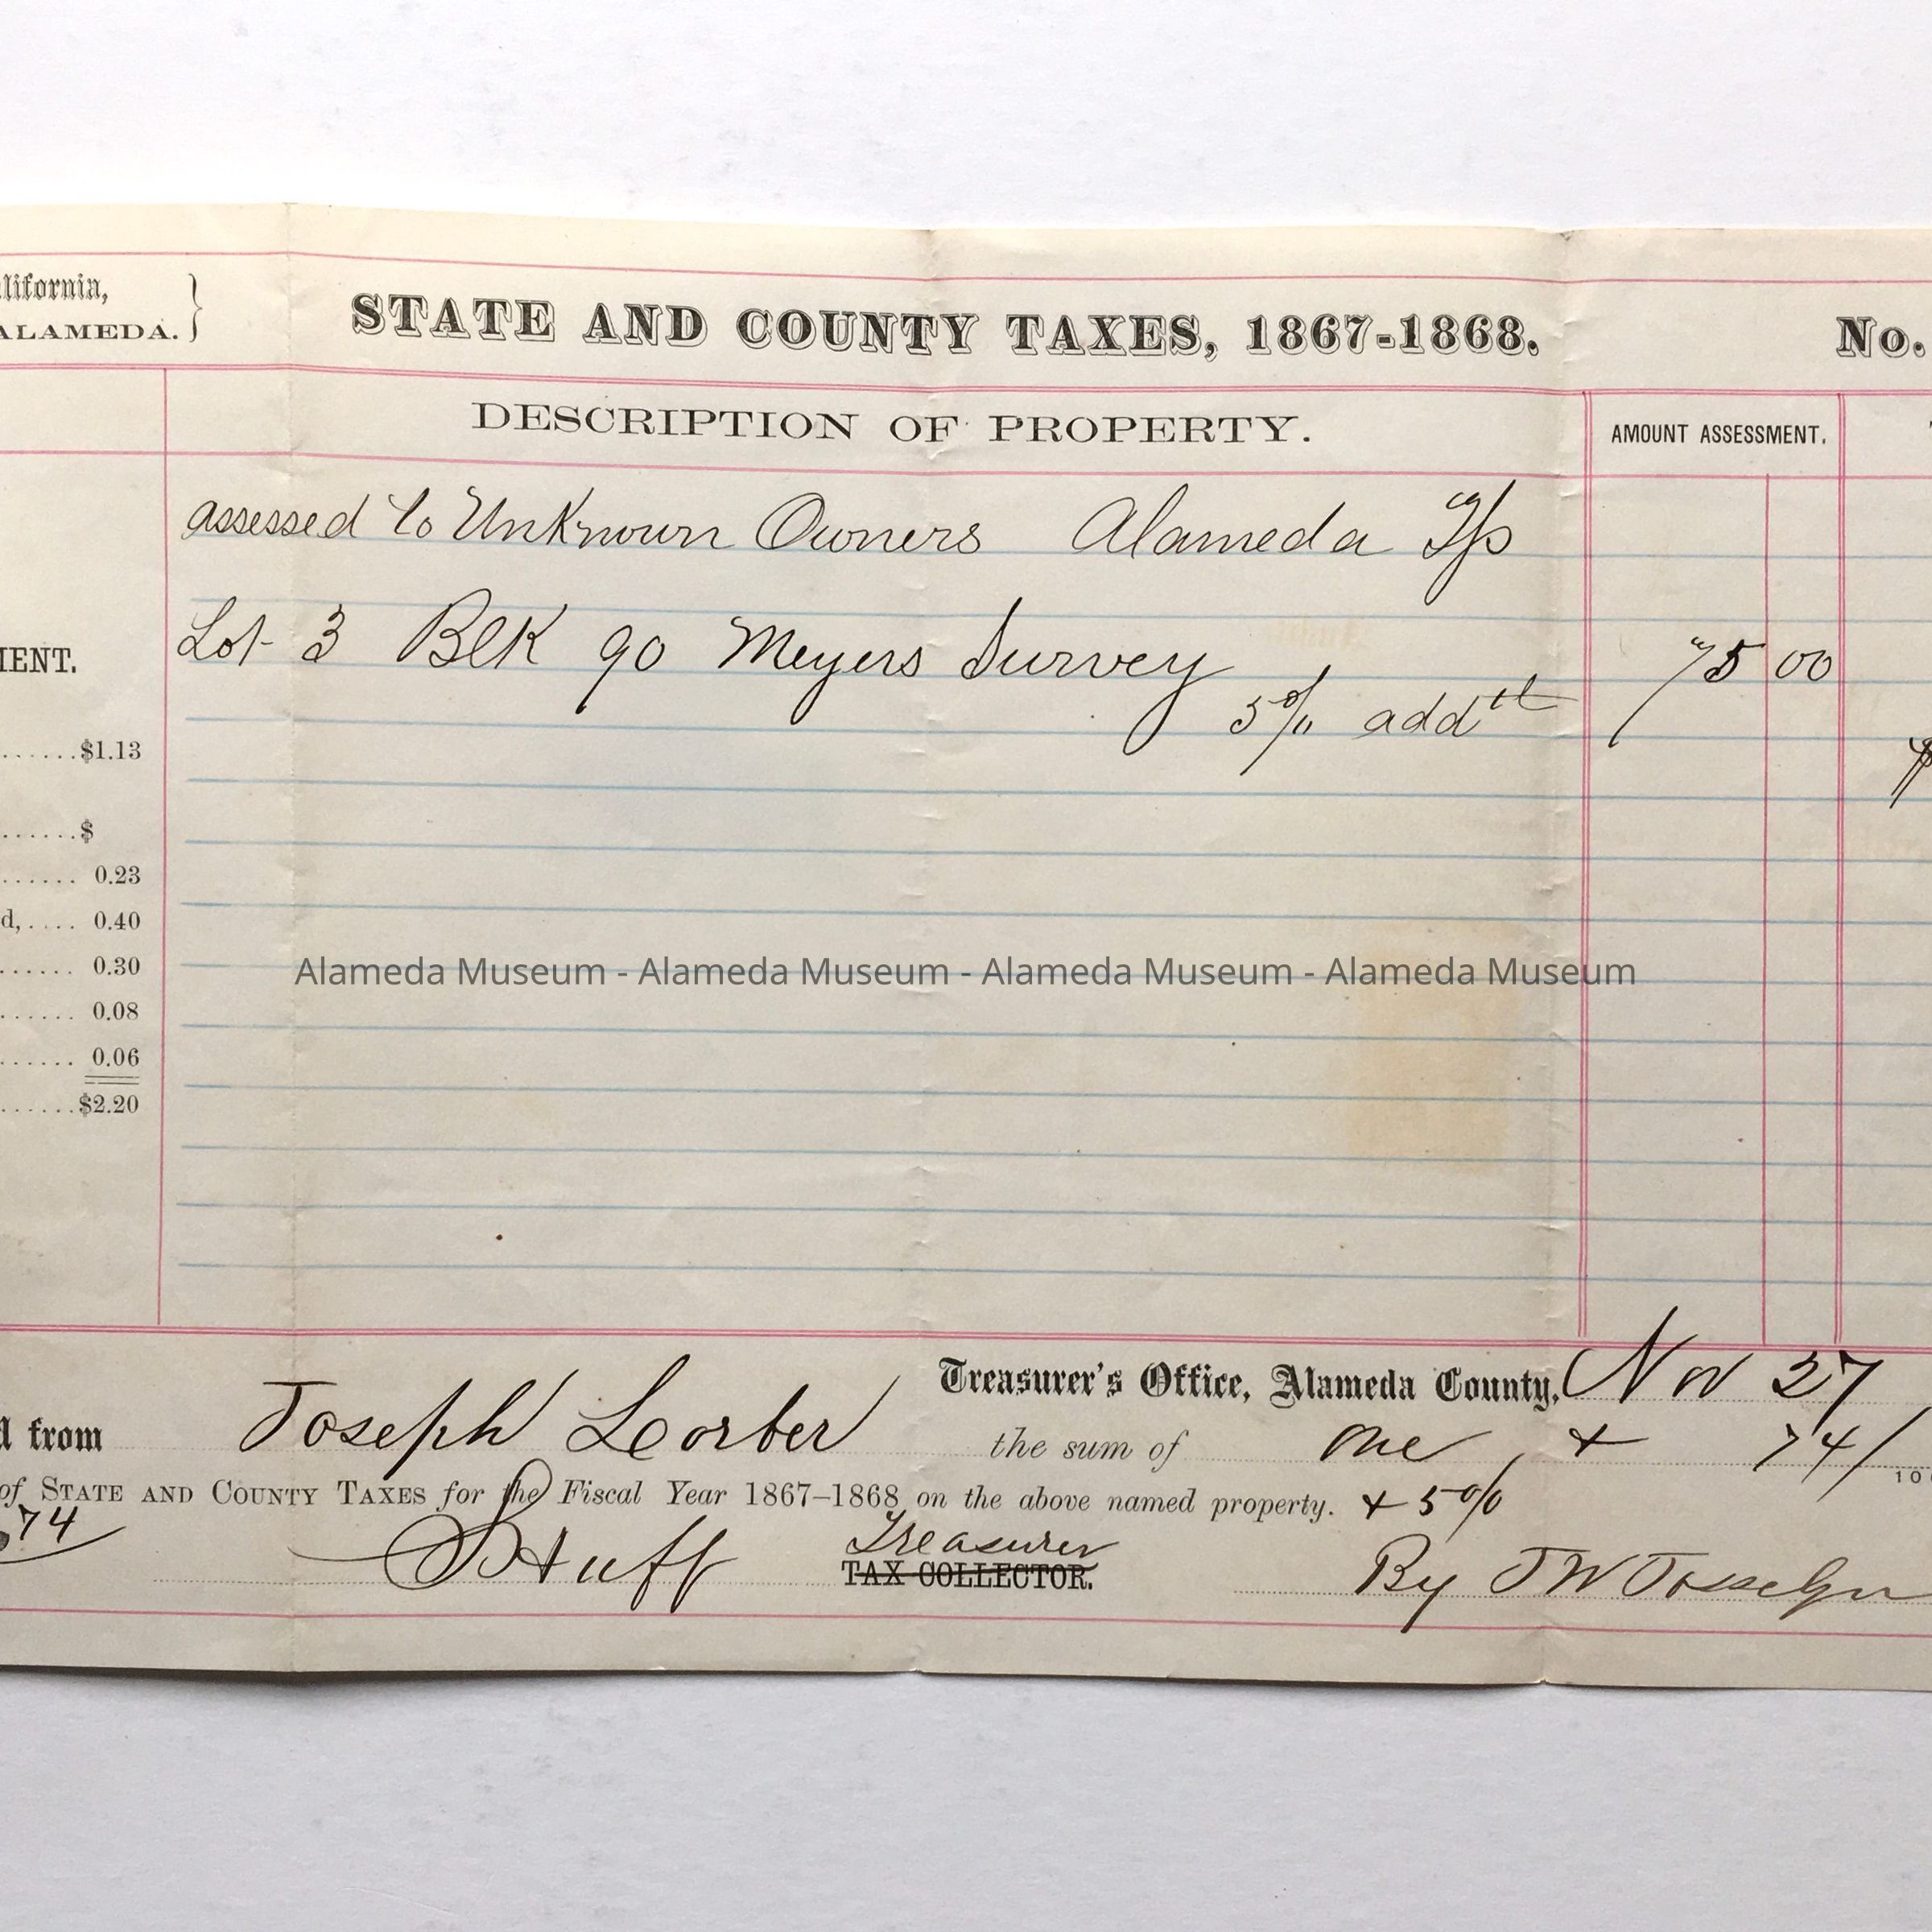 alifornia,
ALAMEDA.
STATE AND COUNTY TAXES, 1867-1868.
No.
DESCRIPTION OF PROPERTY.
AMOUNT ASSESSMENT.
assessed to Unknown Owners Alameda T/p
Lot 3 Blk 90 Meyers Survey 75 00
5% add tl
$
MENT.
......$1.13
......$
...... 0.23
d,.... 0.40
...... 0.30
...... 0.08
...... 0.06
......$2.20
Alameda Museum - Alameda Museum - Alameda Museum - Alameda Museum
Treasurer's Office, Alameda County, Nov 27
d from Joseph Lorber the sum of one + 74/100
of STATE AND COUNTY TAXES for the Fiscal Year 1867–1868 on the above named property. + 5%
74
Huff Treasurer
TAX COLLECTOR.
By J W Josselyn